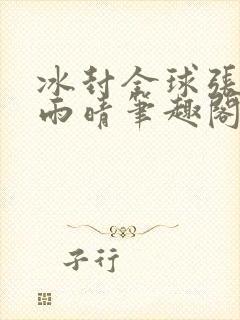 冰封全球張
雨晴筆趣閣
子行